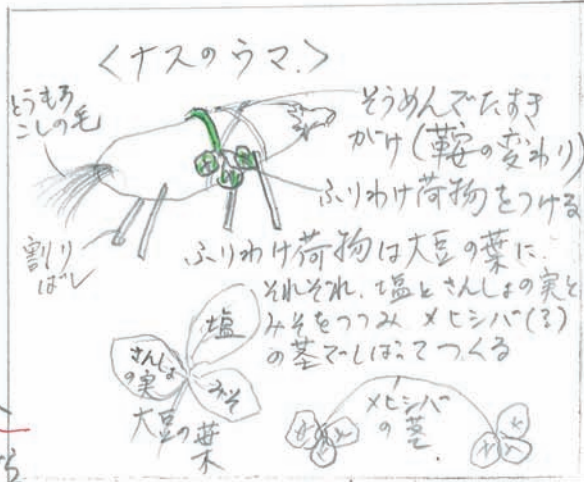 <ナスのウマ.>
とうもろ
こしの毛
そうめんでたすき
がけ(鞍の変わり)
ふりわけ荷物をつける
割り
ばし
ふりわけ荷物は大豆の葉に
それぞれ、塩とさんしょの実と
みそをつつみ メヒシバ(?)
の茎でしばってつくる
塩
さんしょ
の実
みそ
大豆の葉
メヒシバ
の茎.